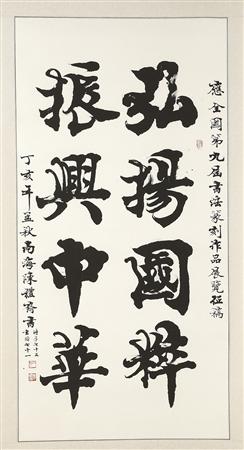 應全國第九屆書法篆刻作品展覽征稿
弘揚國粹
振興中華
丁亥年孟秋南海陳禮齊書